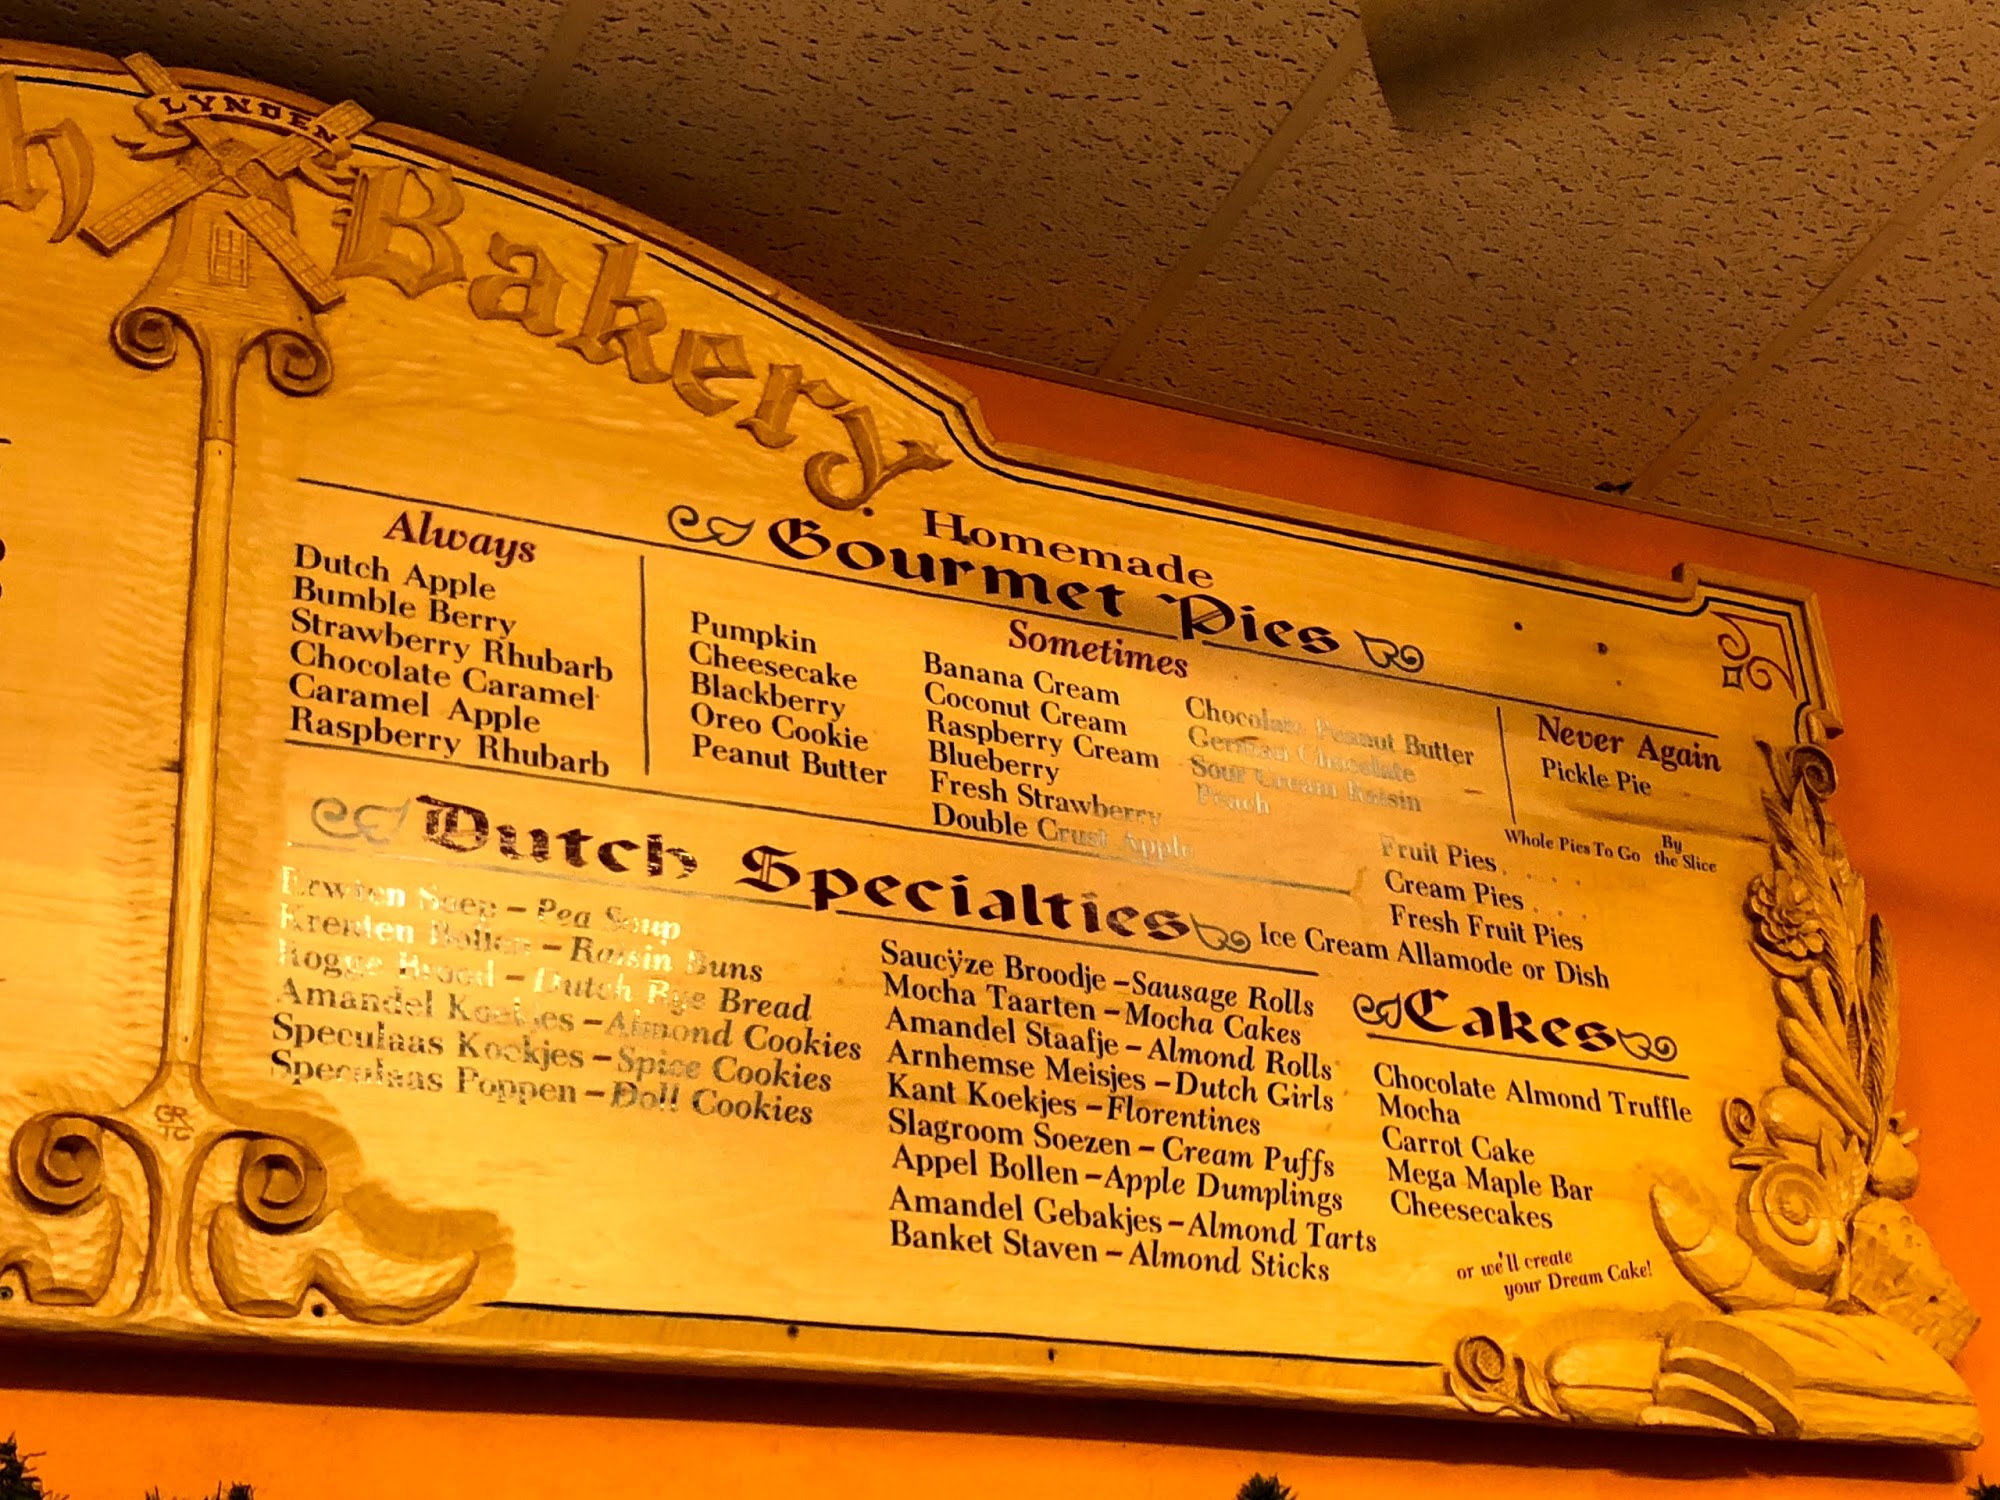 LYNDEN
h Bakery
Homemade
Gourmet Pies
Always
Dutch Apple
Bumble Berry
Strawberry Rhubarb
Chocolate Caramel
Caramel Apple
Raspberry Rhubarb
Sometimes
Pumpkin
Cheesecake
Blackberry
Oreo Cookie
Peanut Butter
Banana Cream
Coconut Cream
Raspberry Cream
Blueberry
Fresh Strawberry
Double Crust Apple
Chocolate Peanut Butter
German Chocolate
Sour Cream Raisin
Peach
Never Again
Pickle Pie
Whole Pies To Go By the Slice
Fruit Pies . . . .
Cream Pies . . .
Fresh Fruit Pies
Ice Cream Allamode or Dish
Dutch Specialties
Erwten Soep – Pea Soup
Krenten Bollen – Raisin Buns
Rogge Brood – Dutch Rye Bread
Amandel Koekjes – Almond Cookies
Speculaas Koekjes – Spice Cookies
Speculaas Poppen – Doll Cookies
Saucÿze Broodje – Sausage Rolls
Mocha Taarten – Mocha Cakes
Amandel Staafje – Almond Rolls
Arnhemse Meisjes – Dutch Girls
Kant Koekjes – Florentines
Slagroom Soezen – Cream Puffs
Appel Bollen – Apple Dumplings
Amandel Gebakjes – Almond Tarts
Banket Staven – Almond Sticks
Cakes
Chocolate Almond Truffle
Mocha
Carrot Cake
Mega Maple Bar
Cheesecakes
or we'll create
your Dream Cake!
GR
TC